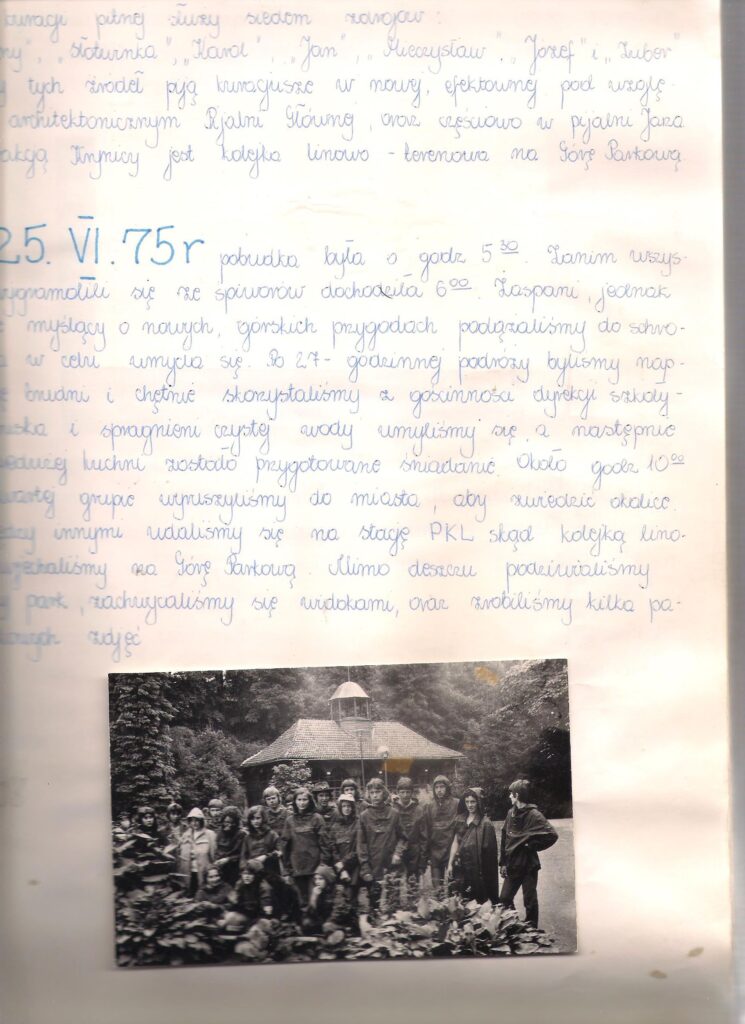 kuracji pitnej służy siedem zdrojów:
"Słotwinka", "Karol", "Jan", "Mieczysław", "Józef" i "Zuber"
tych źródeł piją kuracjusze w nowej, efektownej pod wzglę-
architektonicznym Pijalni Głównej, oraz częściowo w pijalni Jana
akcją Krynicy jest kolejka linowo - terenowa na Górę Parkową.
25. VI. 75r pobudka była o godz 5 30. Zanim wszys-
wygramolili się ze śpiworów dochodziła 6 00. Zaspani, jednak
myślący o nowych, górskich przygodach podążaliśmy do schro-
w celu umycia się. Po 27- godzinnej podróży byliśmy nap-
brudni i chętnie skorzystaliśmy z gościnności dyrekcji szkoły-
i spragnieni czystej wody umyliśmy się, a następnie
kuchni zostało przygotowane śniadanie. Około godz 10 00
grupie wyruszyliśmy do miasta, aby zwiedzić okolice.
innymi udaliśmy się na stację PKL skąd kolejką lino-
wjechaliśmy na Górę Parkową. Mimo deszczu podziwialiśmy
park, zachwycaliśmy się widokami, oraz zrobiliśmy kilka pa-
zdjęć